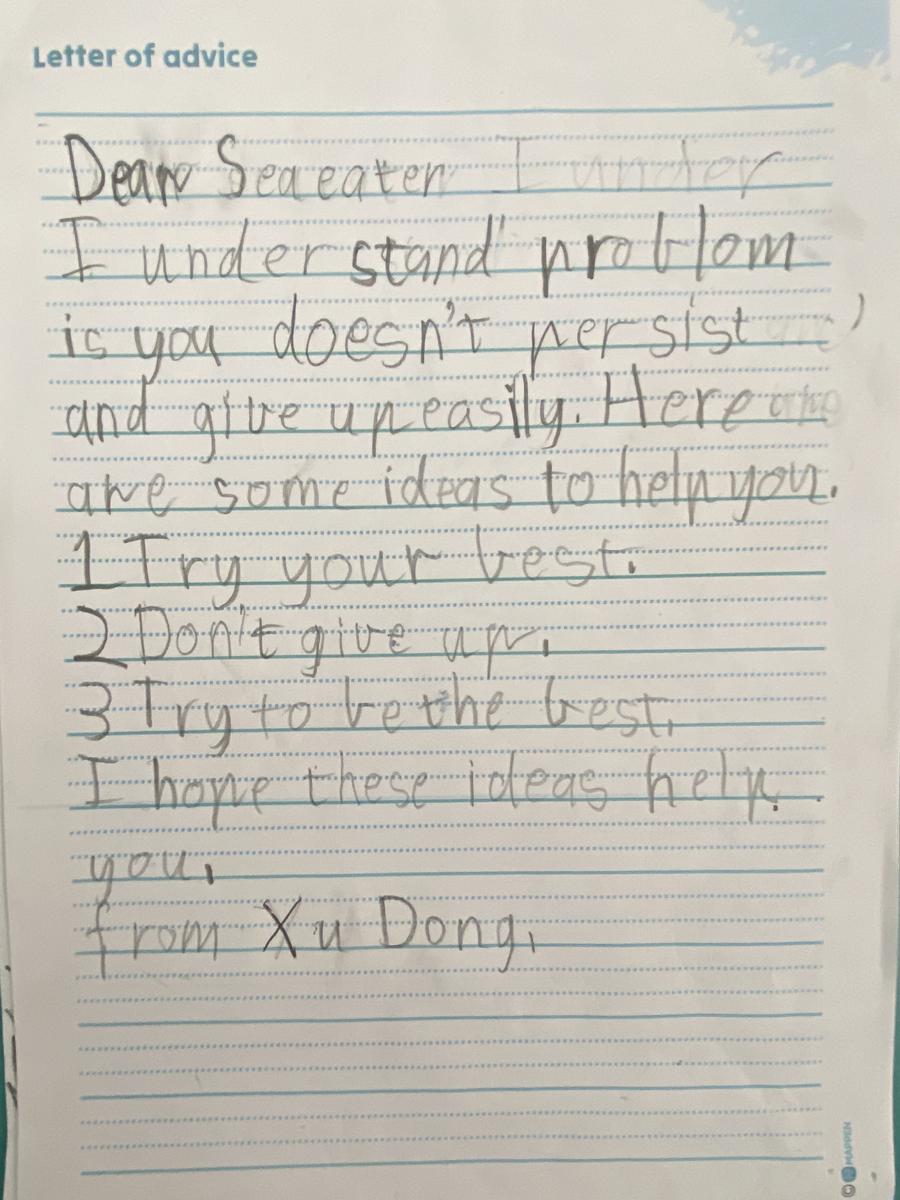 Letter of advice
Dear Sea eater I under
I under stand problom
is you doesn't persist
and give up easily. Here are
are some ideas to help you.
1 Try your best.
2 Don't give up.
3 Try to be the best.
I hope these ideas help
you.
from Xu Dong.
© MAPPEN